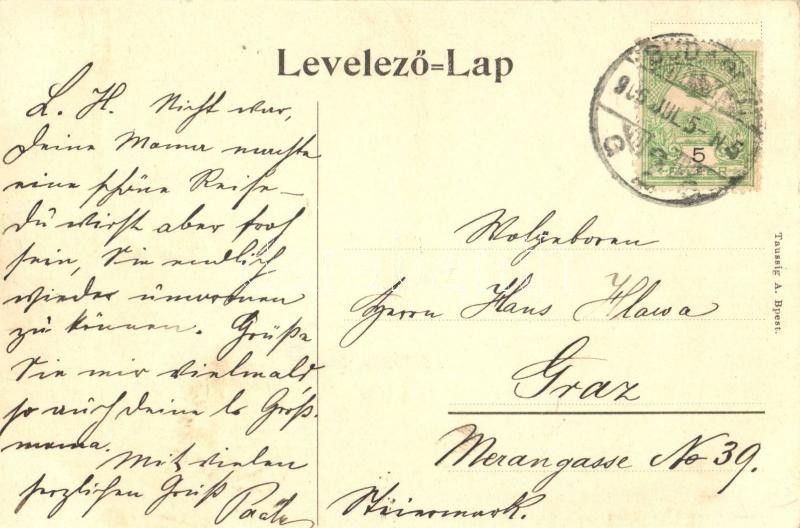 Levelező=Lap
L. H. Nicht war,
deine Mama machte
eine schöne Reise –
du wirst aber froh
sein, Sie endlich
wieder umarmen
zu können. Grüße
Sie mir vielmals
so auch deine lb Groß-
mama.
Mit vielen
herzlichen Gruß
BUDAPEST
906 JUL. 5 - N5
5
FILLÉR
Wolgeboren
Herrn Hans Hlawa
Graz
Merangasse No 39.
Steiermark.
Taussig A. Bpest.